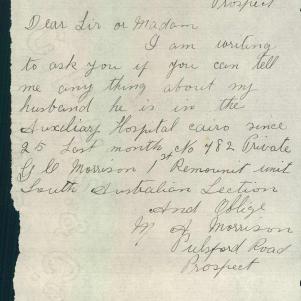 Prospect
Dear Sir or Madam
I am writing
to ask you if you can tell
me any thing about my
husband he is in the
Auxiliary Hospital cairo since
25 Last month No 782 Private
G C Morrison 1st Remount unit
South Australian Section
And Oblige
M A Morrison
Pulsford Road
Prospect